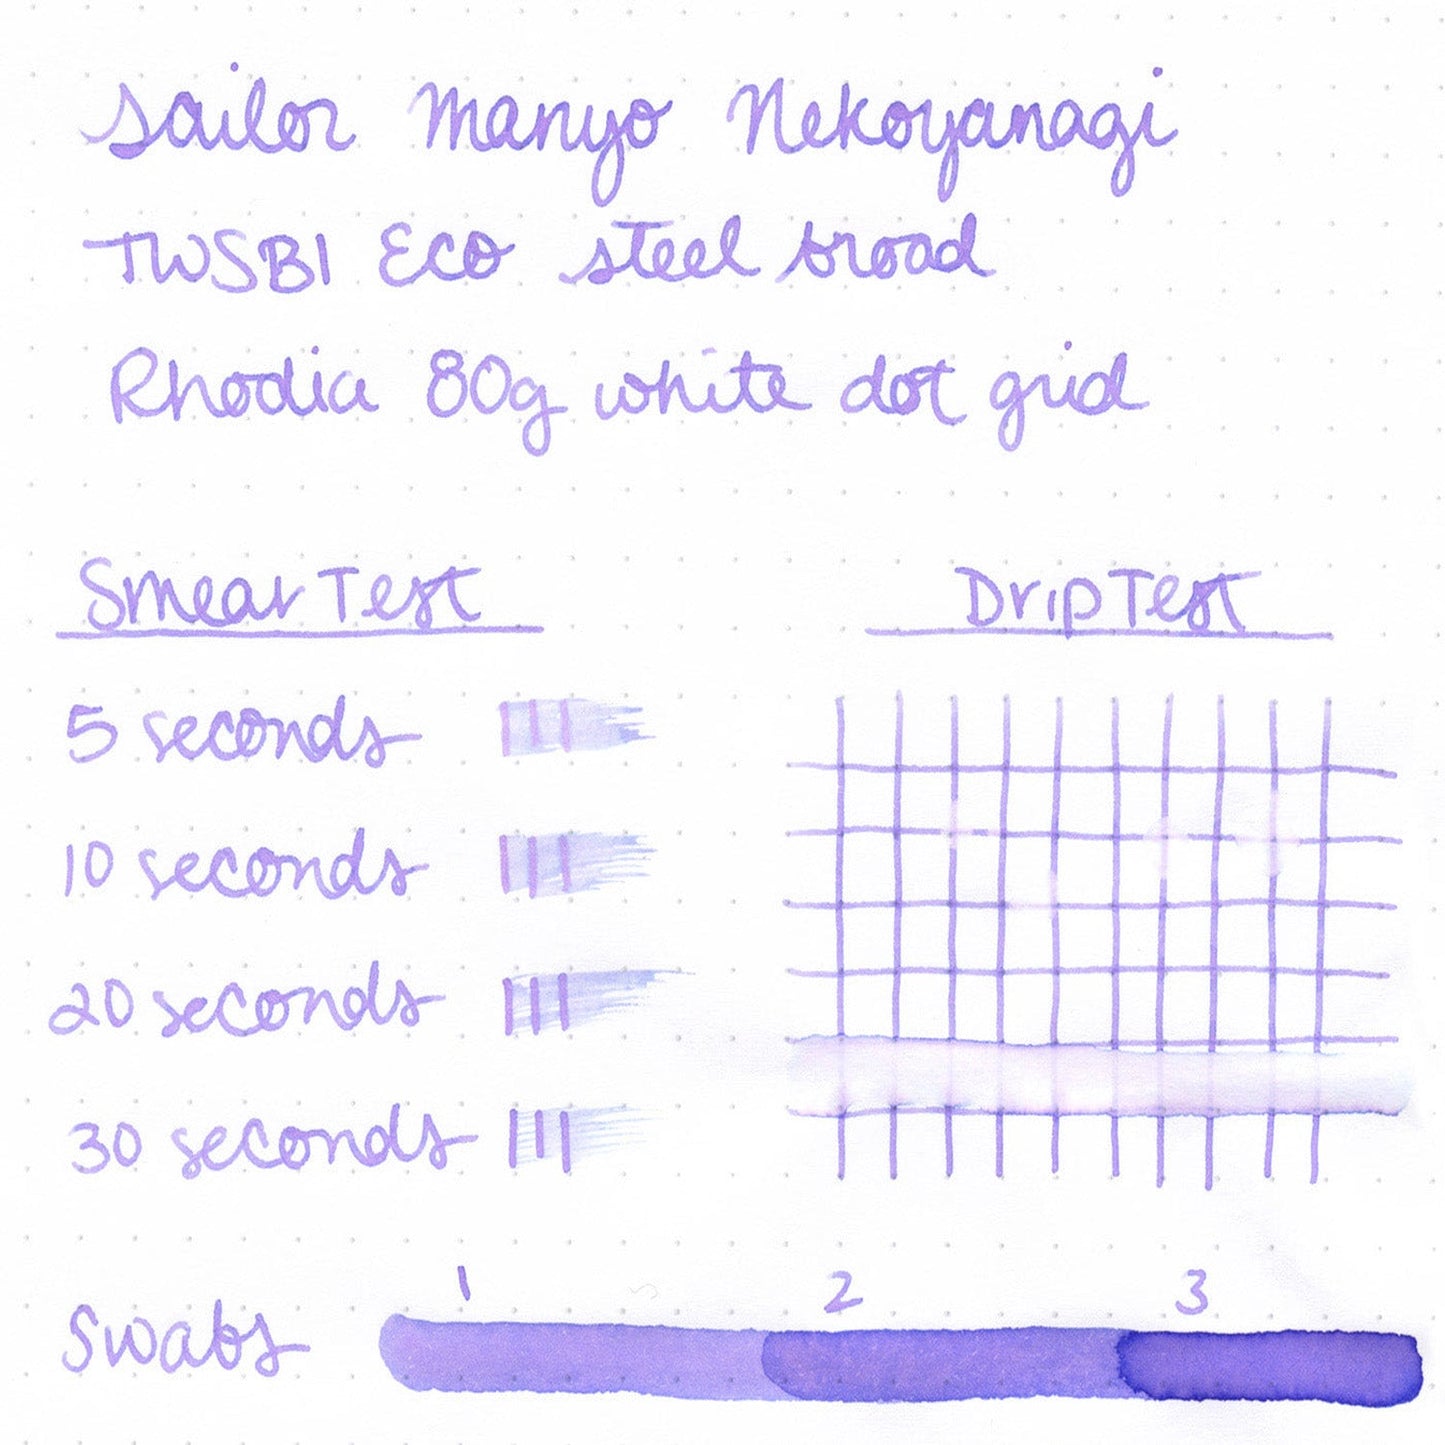 Sailor Manyo Nekoyanagi
TWSBI Eco steel broad
Rhodia 80g white dot grid
Smear Test
Drip Test
5 seconds
10 seconds
20 seconds
30 seconds
1 2 3
Swabs